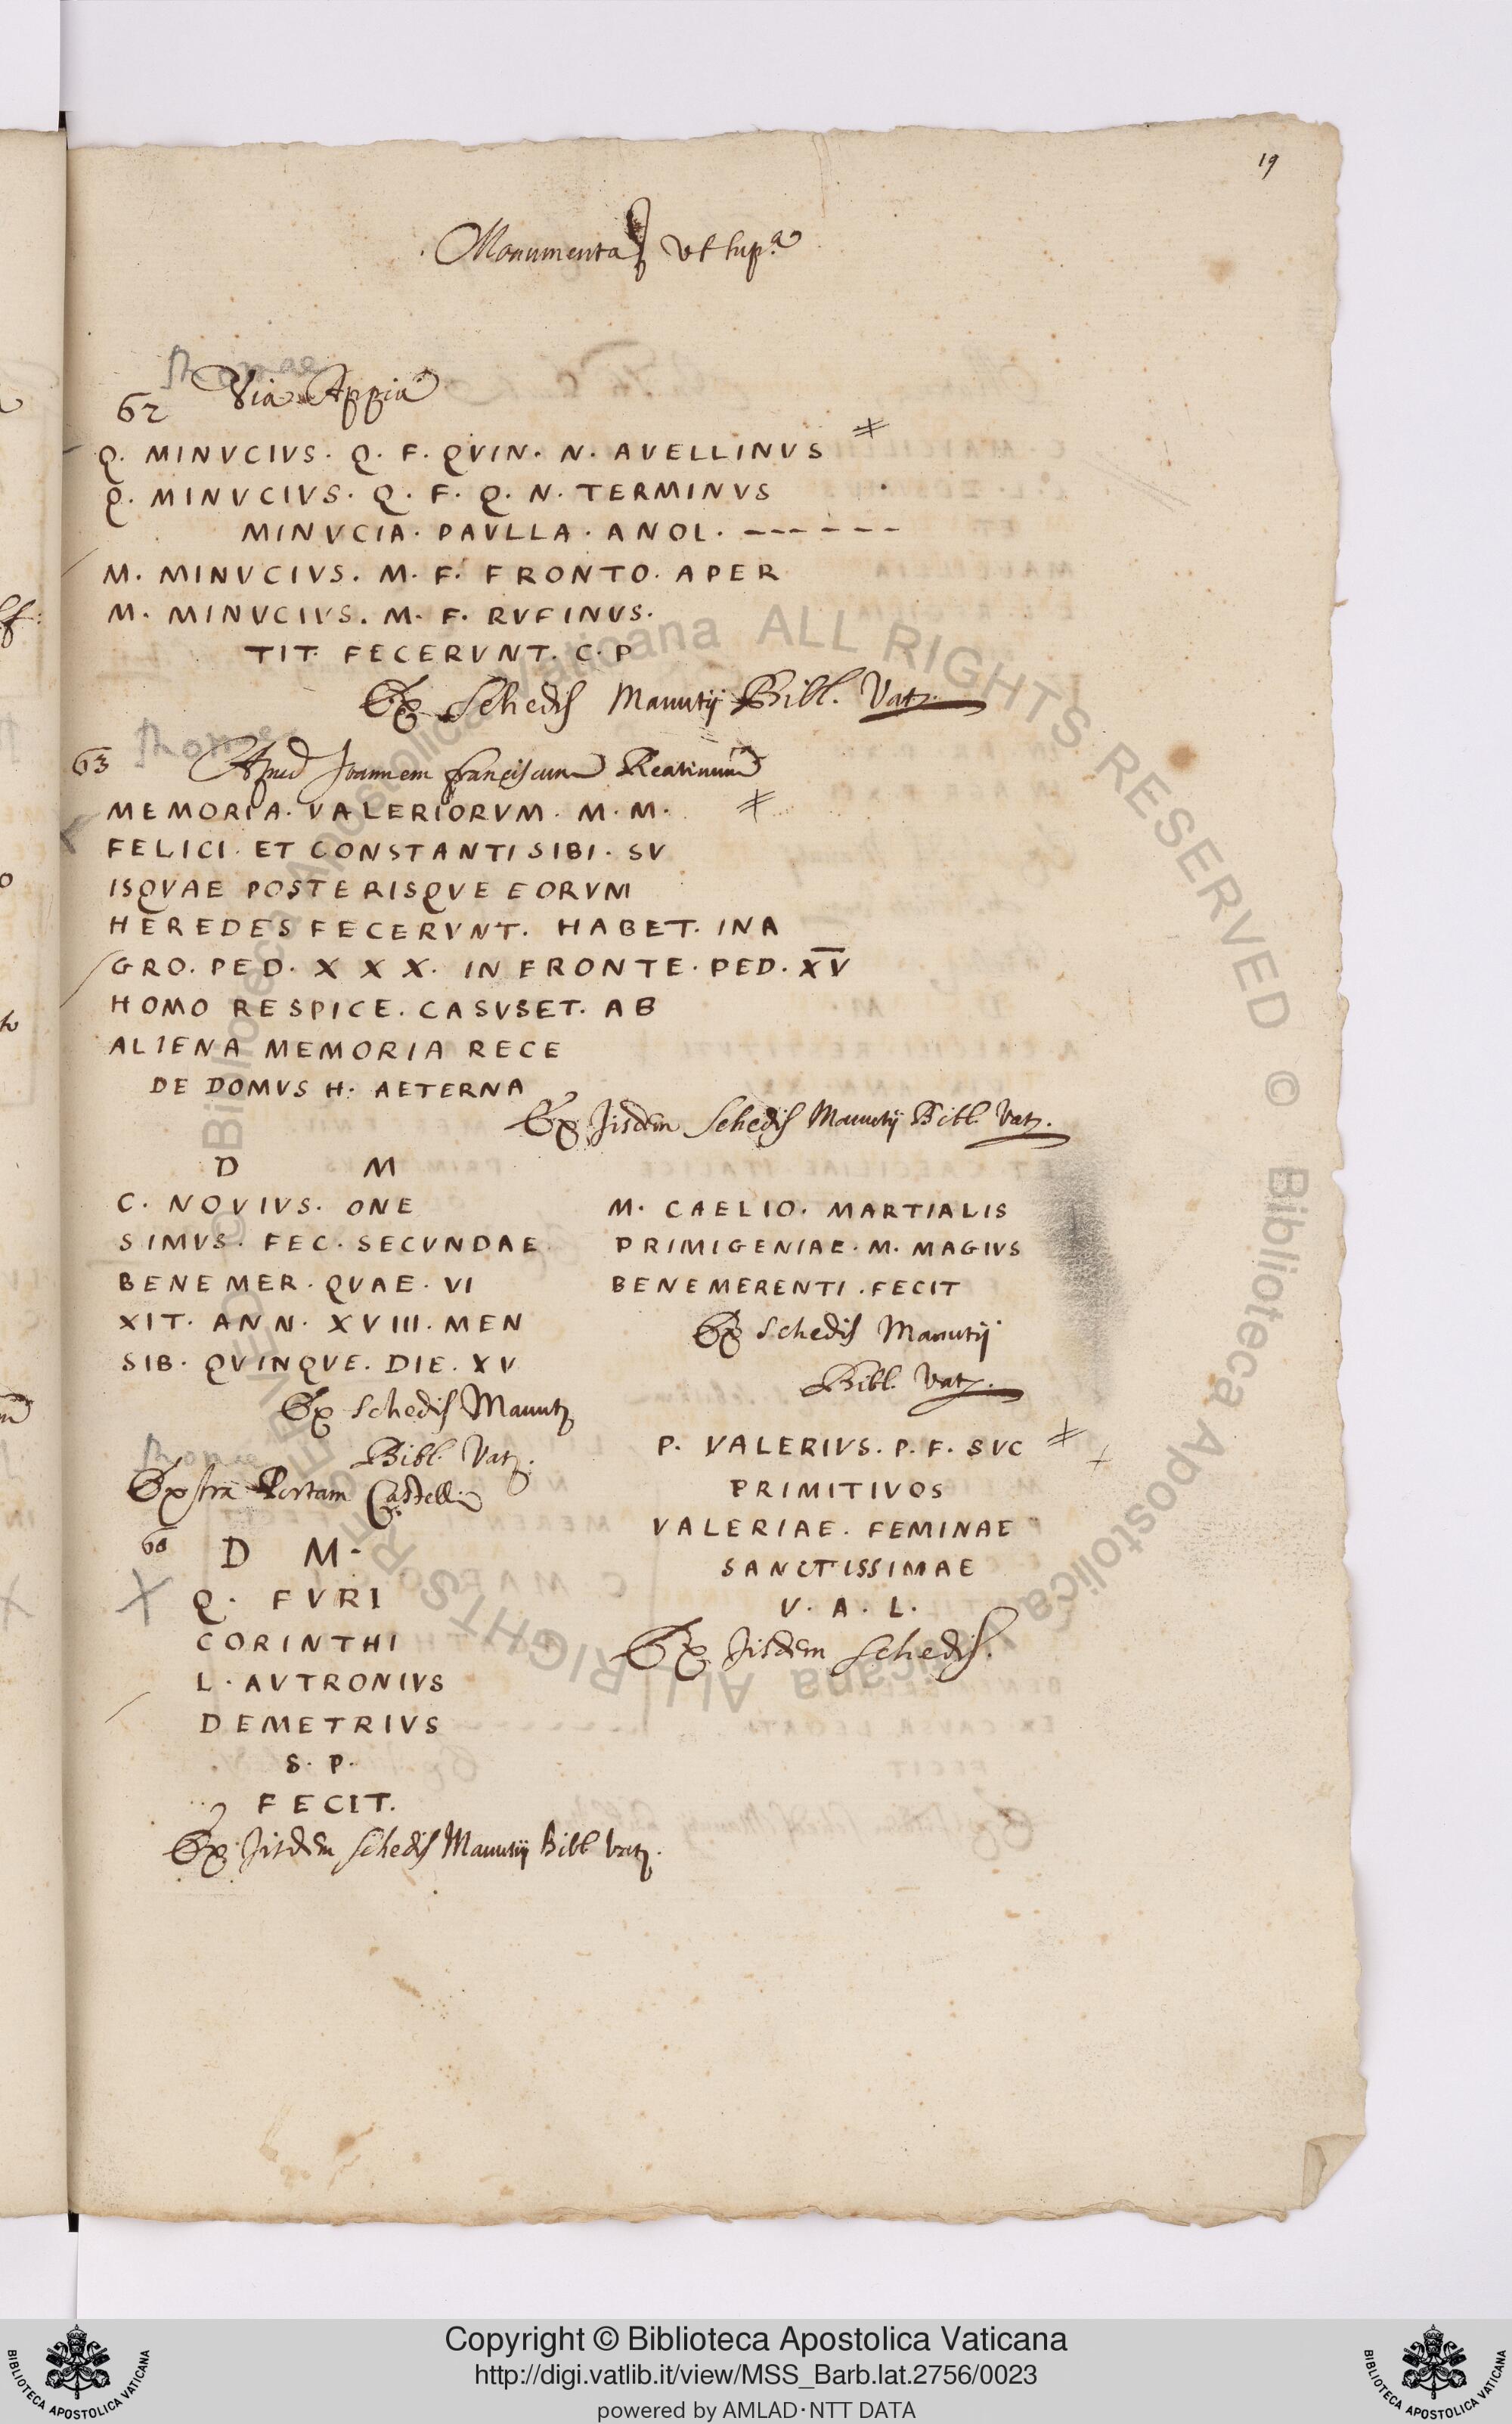 19
Monumenta ut sup.a
Romae
62 Via Appia
Q. MINVCIVS. Q. F. QVIN. N. AVELLINVS
Q. MINVCIVS. Q. F. Q. N. TERMINVS
MINVCIA. PAVLLA. ANOL. ------
M. MINVCIVS. M. F. FRONTO. APER
M. MINVCIVS. M. F. RVFINVS.
TIT. FECERVNT. C. P
Ex Schedis Manutij Bibl. Vat.
Romae
63 Apud Joannem franciscum Reatinum
MEMORIA. VALERIORVM. M. M.
FELICI. ET CONSTANTI SIBI. SV
ISQVAE POSTERISQVE EORVM
HEREDES FECERVNT. HABET. INA
GRO. PED. X X X. IN FRONTE. PED. XV
HOMO RESPICE. CASVSET. AB
ALIENA MEMORIA RECE
DE DOMVS H. AETERNA
Ex Jisdem Schedis Manutij Bibl. Vat.
D M
C. NOVIVS. ONE
SIMVS. FEC. SECVNDAE
BENEMER. QVAE. VI
XIT. ANN. XVIII. MEN
SIB. QVINQVE. DIE. XV
Ex Schedis Manutij
Bibl. Vat.
Romae
Extra Portam Castelli
D M.
Q. FVRI
CORINTHI
L. AVTRONIVS
DEMETRIVS
S. P.
FECIT.
Ex Jisdem Schedis Manutij Bibl Vat.
M. CAELIO. MARTIALIS
PRIMIGENIAE. M. MAGIVS
BENEMERENTI. FECIT
Ex Schedis Manutij
Bibl. Vat.
P. VALERIVS. P. F. SVC
PRIMITIVOS
VALERIAE. FEMINAE
SANCTISSIMAE
V. A. L.
Ex Jisdem Schedis.
© Biblioteca Apostolica Vaticana ALL RIGHTS RESERVED © Biblioteca Apostolica Vaticana ALL RIGHTS RESERVED
Copyright © Biblioteca Apostolica Vaticana
http://digi.vatlib.it/view/MSS_Barb.lat.2756/0023
powered by AMLAD·NTT DATA
BIBLIOTECA APOSTOLICA VATICANA
BIBLIOTECA APOSTOLICA VATICANA